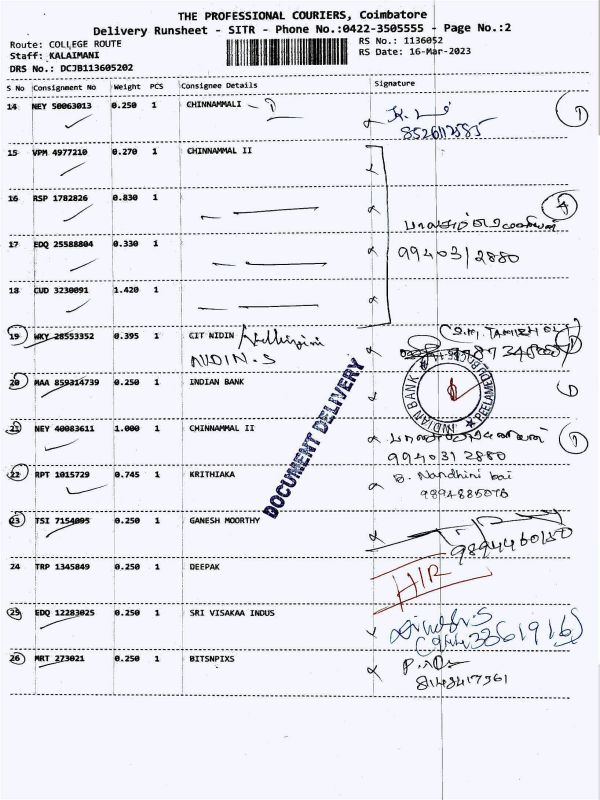 THE PROFESSIONAL COURIERS, Coimbatore
Delivery Runsheet - SITR - Phone No.:0422-3505555 - Page No.:2
Route: COLLEGE ROUTE RS No.: 1136052
Staff: KALAIMANI RS Date: 16-Mar-2023
DRS No.: DCJB113605202
S No Consignment No Weight PCS Consignee Details Signature
14 NEY 50063013 0.250 1 CHINNAMMALI
15 VPM 4977210 0.270 1 CHINNAMMAL II
16 RSP 1782826 0.830 1
17 EDQ 25588804 0.330 1
99403 12880
18 CUD 3230091 1.420 1
19 WKY 28553352 0.395 1 GIT NIDIN
NIDIN.S
20 MAA 859314739 0.250 1 INDIAN BANK
INDIAN BANK PEELAMEDU
DOCUMENT DELIVERY
21 NEY 40083611 1.000 1 CHINNAMMAL II
99403 12880
22 RPT 1015729 0.745 1 KRITHIAKA B. Nandhini bai
9894885076
23 TSI 7154095 0.250 1 GANESH MOORTHY
9894460150
24 TRP 1345849 0.250 1 DEEPAK
25 EDQ 12283025 0.250 1 SRI VISAKAA INDUS
26 MRT 273021 0.250 1 BITSNPIXS